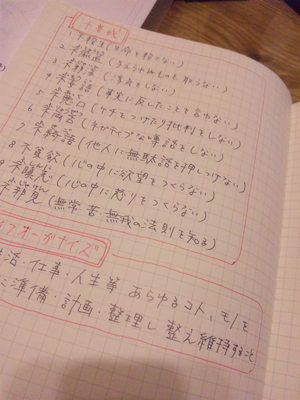 十善戒
1 不殺生(生命を殺さない)
2. 不偸盗(与えられぬものを取らない)
3 不邪淫(浮気をしない)
4 不妄語(事実に反したことを言わない)
5 不悪口(ケチをつけたり批判をしない)
6 不両舌(ネガティブな をしない)
7 不綺語(他人に無駄話を押しつけない)
8 不貪欲(心の中に欲望をつくらない)
9 不瞋恚(心の中に怒りをつくらない)
不邪見(無常・苦・無我の法則を知る)
フオーガナイズ
活・仕事・人生等 あらゆるコト、モノを
準備・計画・整理し 整え維持すること